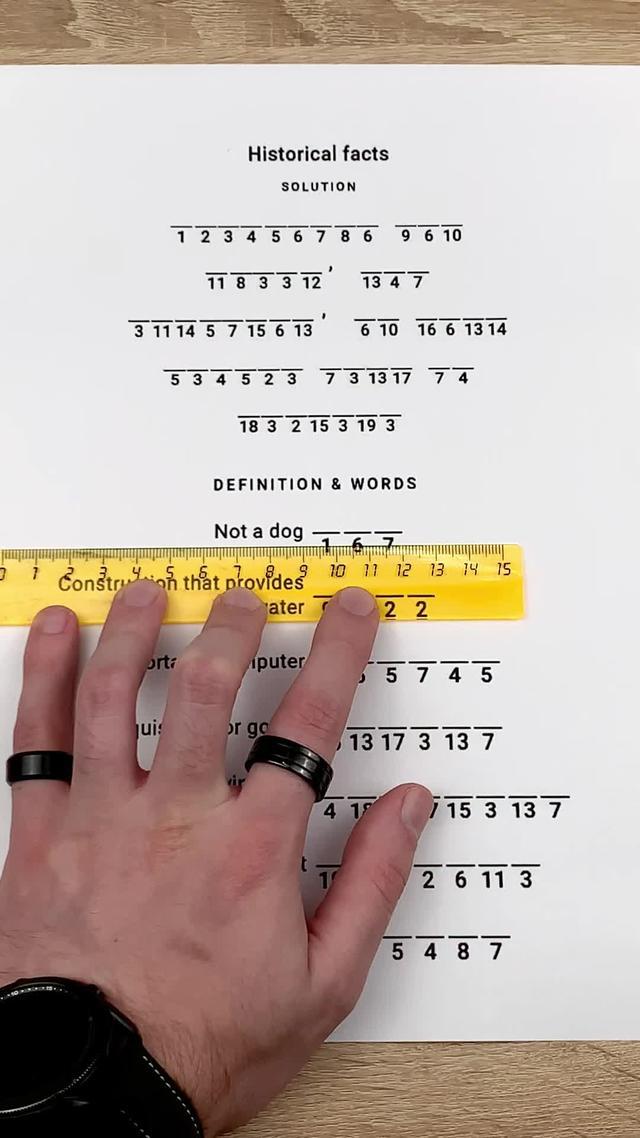 Historical facts
SOLUTION
1 2 3 4 5 6 7 8 6 9 6 10
11 8 3 3 12 ’ 13 4 7
3 11 14 5 7 15 6 13 ’ 6 10 16 6 13 14
5 3 4 5 2 3 7 3 13 17 7 4
18 3 2 15 3 19 3
DEFINITION & WORDS
Not a dog 1 6 7
0 1 2 3 4 5 6 7 8 9 10 11 12 13 14 15
Construction that provides
2 2
5 7 4 5
13 17 3 13 7
4 15 3 13 7
2 6 11 3
5 4 8 7